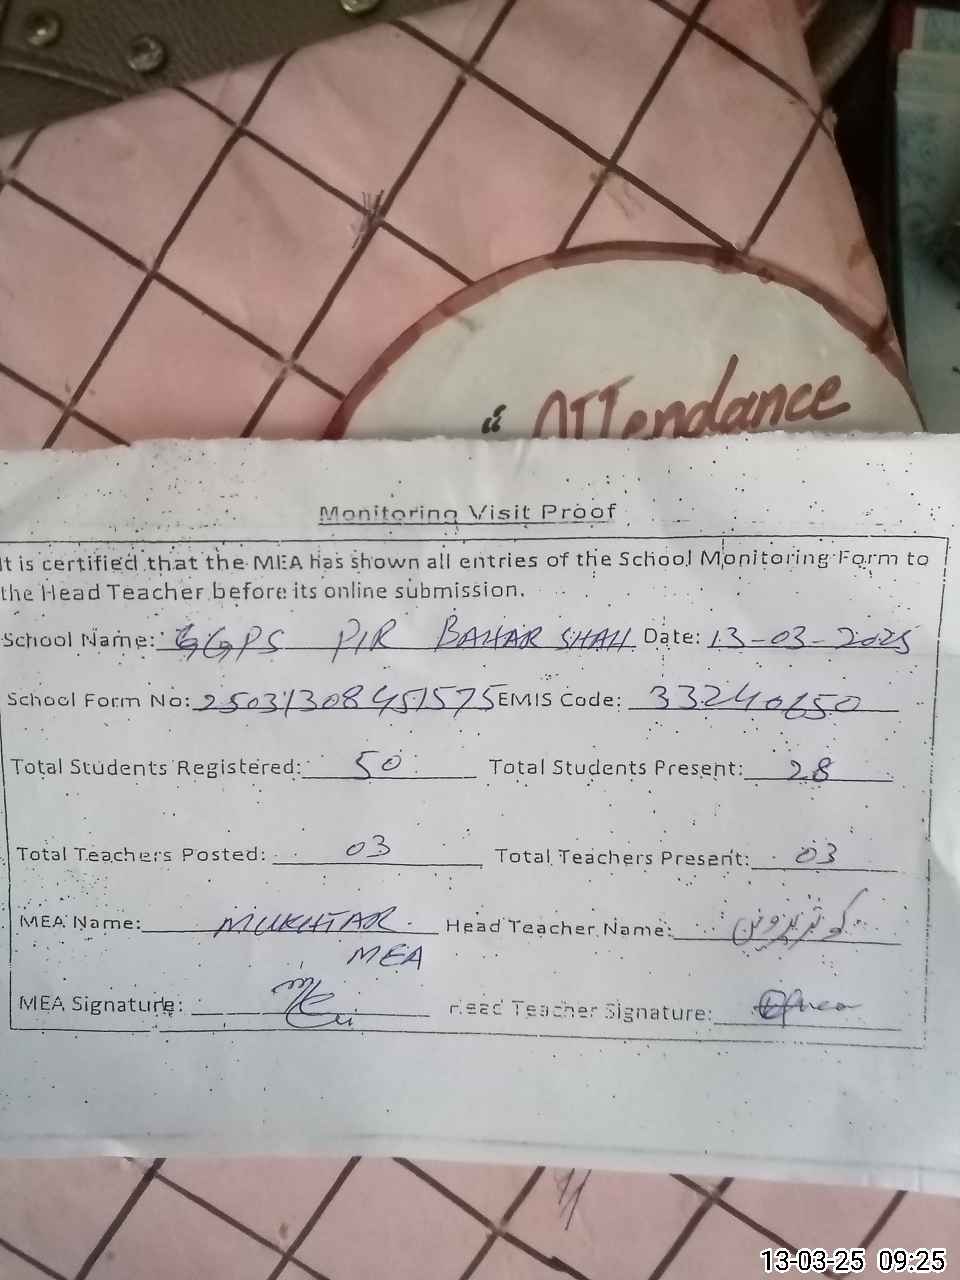 " ATTendance
Monitoring Visit Proof
It is certified that the MEA has shown all entries of the School Monitoring Form to
the Head Teacher before its online submission.
School Name: GGPS PIR BAHAR SHAH Date: 13-03-2025
School Form No: 25031308451575 EMIS Code: 33240650
Total Students Registered: 50 Total Students Present: 28
Total Teachers Posted: 03 Total Teachers Present: 03
MEA Name: MUKHTAR Head Teacher Name:
MEA
MEA Signature: Head Teacher Signature:
13-03-25 09:25